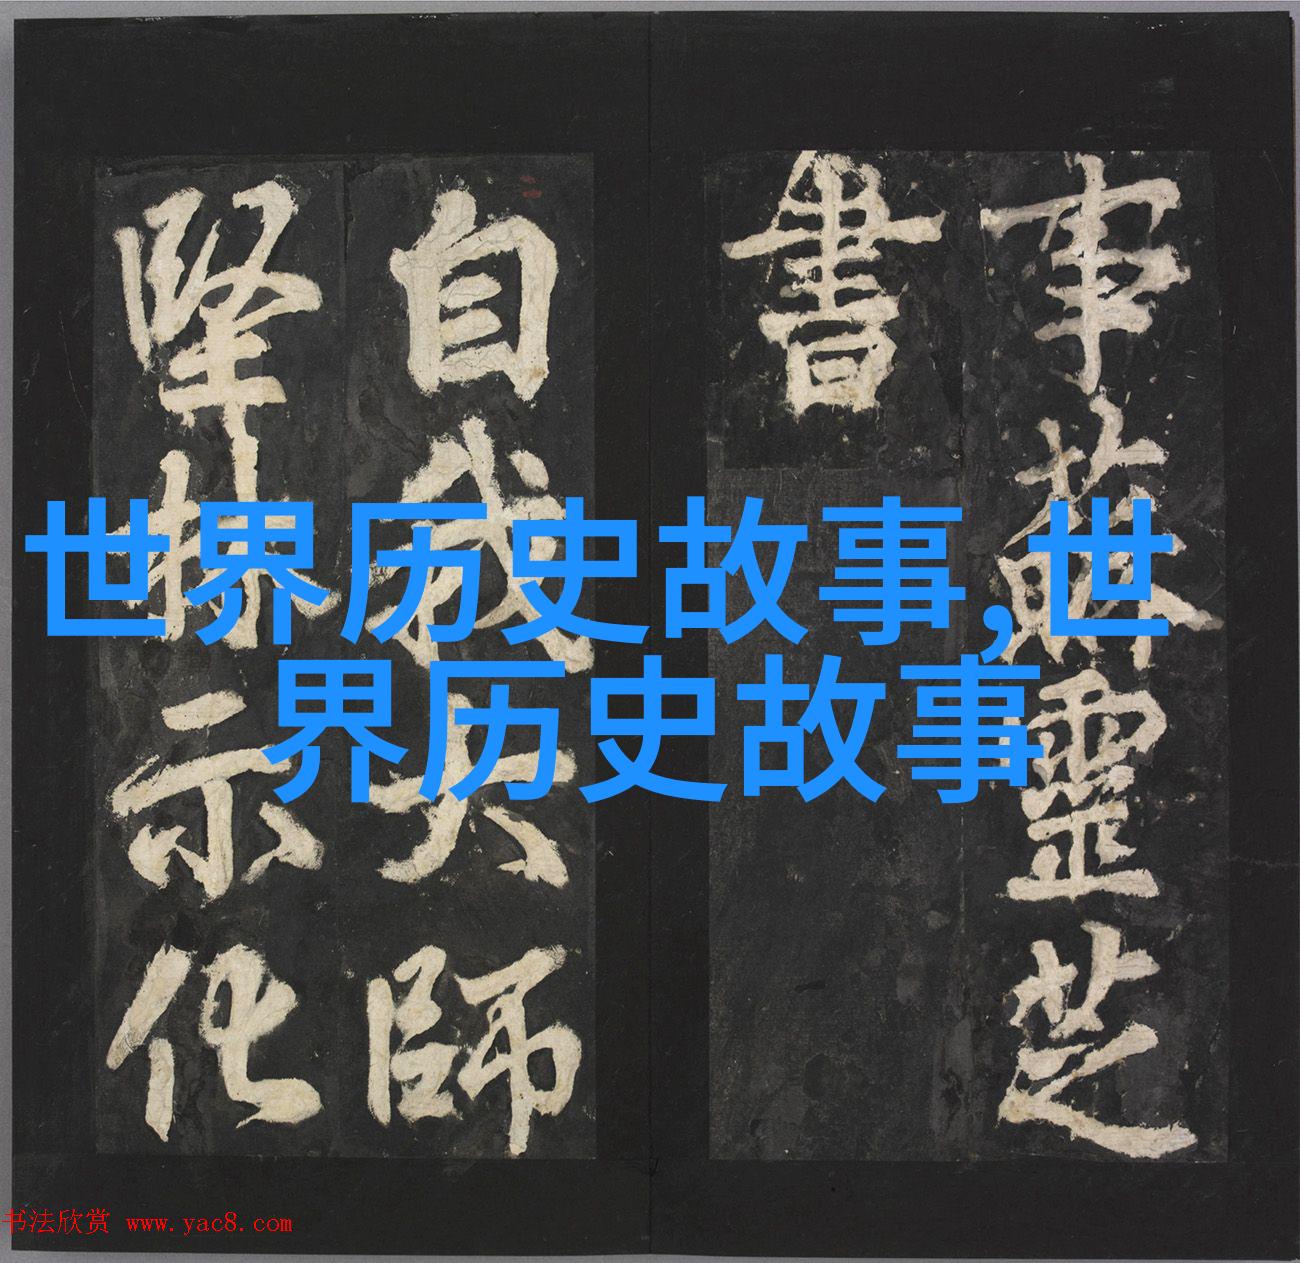 事蘇靈芝
書
自我大師
堅林示化
世界历史故事,世
界历史故事
书法欣赏 www.yac8.com